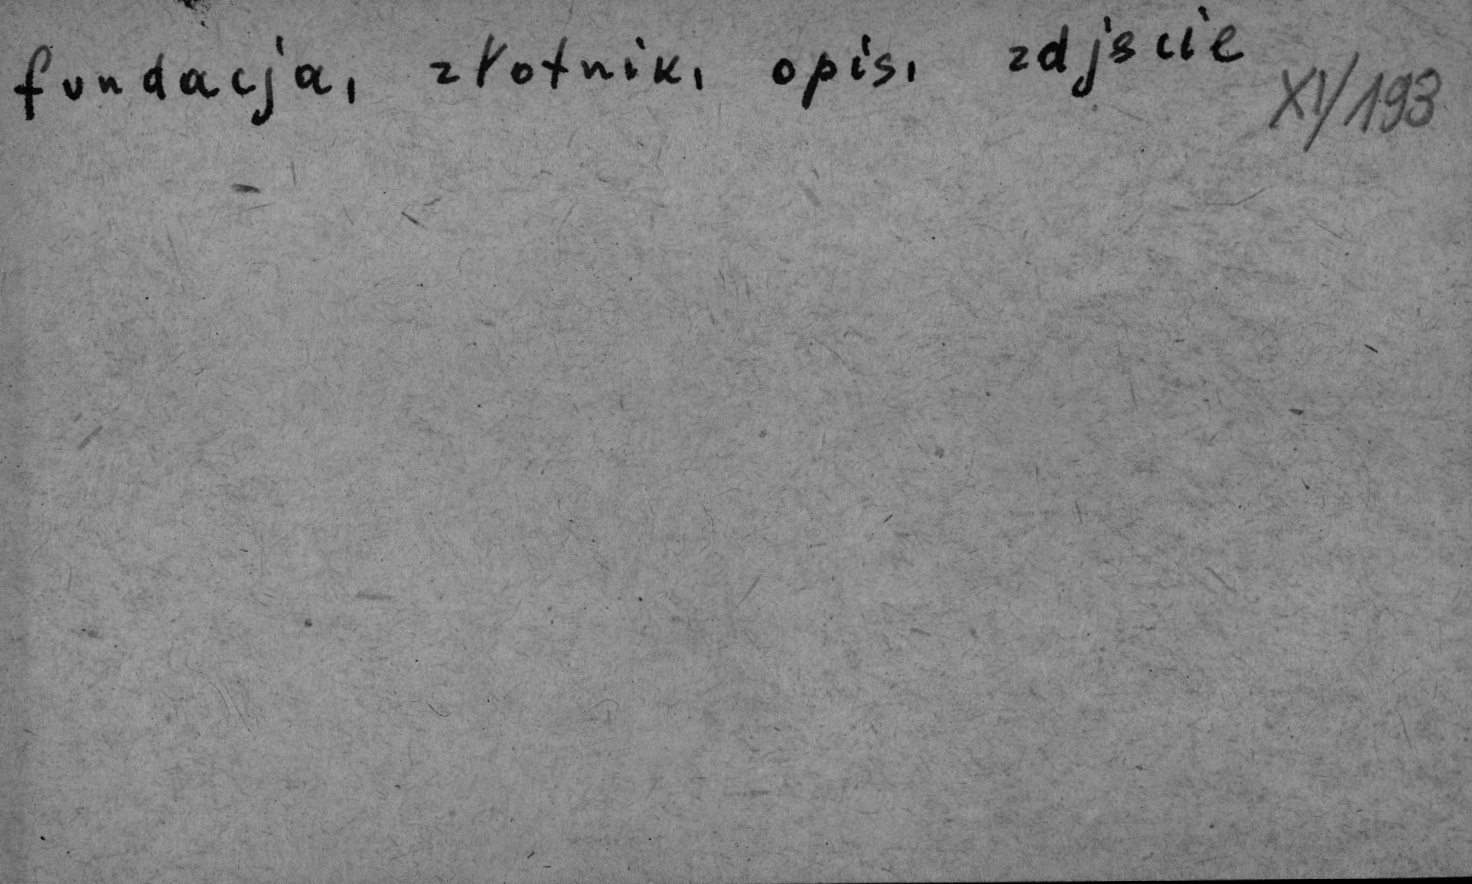 fundacja, złotnik, opis, zdjście
XI/193